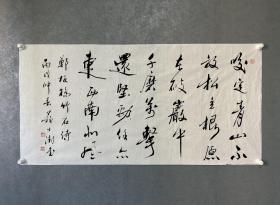 咬定青山不
放松立根原
在破巖中
千磨萬擊
還堅勁任尔
東西南北风
鄭板橋竹石詩
丙戌仲春